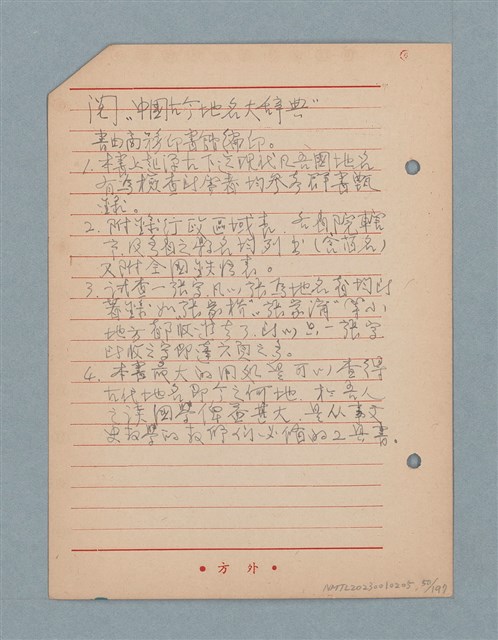 閱"中國古今地名大辭典"
書由商務印書館編印。
1. 本書上起源古下迄現代凡吾國地名
有為檢查所需者均參考群書甄
錄。
2. 附錄行政區域表,各省院轄
市及各省之縣名均列出(含舊名)
又附全國鐵路表。
3. 試查一張字,凡以張為地名者均已
蒐錄,如"張家橋""張家浦"等小
地方都收進去了,所以只一張字
所收之字即達六頁之多。
4. 本書最大的用處是可以查得
古代地名即今之何地,於吾人
之讀國學俾益甚大,是從事文
史教學的教師們必備的工具書。
方外
NMTL20230010205. 50/197